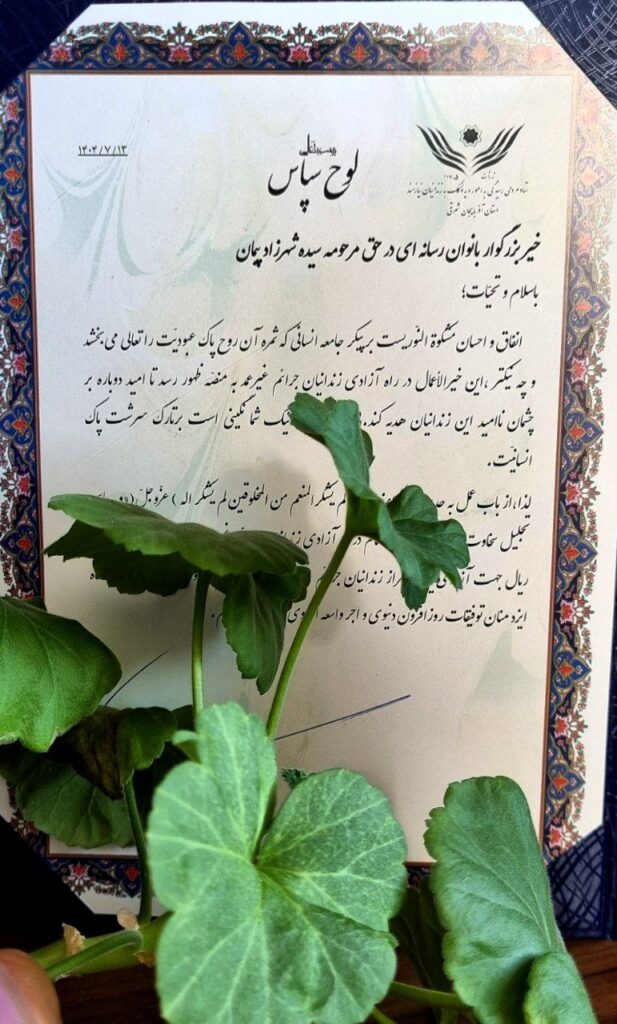 ۱۴۰۴/۷/۱۳
لوح سپاس
ستاد مردمی رسیدگی به امور دیه و کمک به زندانیان نیازمند
استان آذربایجان شرقی
خیر بزرگوار بانوان رسانه ای در حق مرحومه سیده شهرزاد پیمان
باسلام و تحیّات؛
انفاق و احسان مشکوة النّوریست بر پیکر جامعه انسانی که ثمره آن روح پاک عبودیّت را تعالی می بخشد
و چه نیکتر، این خیرالأعمال در راه آزادی زندانیان جرائم غیرعمد به منصّه ظهور رسد تا امید دوباره بر
چشمان ناامید این زندانیان هدیه کند. نیک شما نگینی است بر تارک سرشت پاک
انسانیّت.
لذا، از باب عمل به لم یشکر المنعم من المخلوقین لم یشکر اله ) عزّوجلّ
تجلیل سخاوت آزادی
ریال جهت از زندانیان
ایزد منان توفیقات روز افزون دنیوی و اجر واسعه